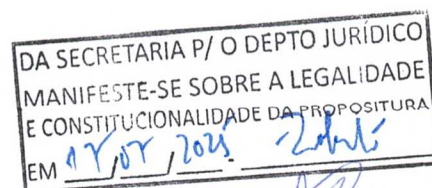 DA SECRETARIA P/ O DEPTO JURÍDICO
MANIFESTE-SE SOBRE A LEGALIDADE
E CONSTITUCIONALIDADE DA PROPOSITURA
EM / / 2025.